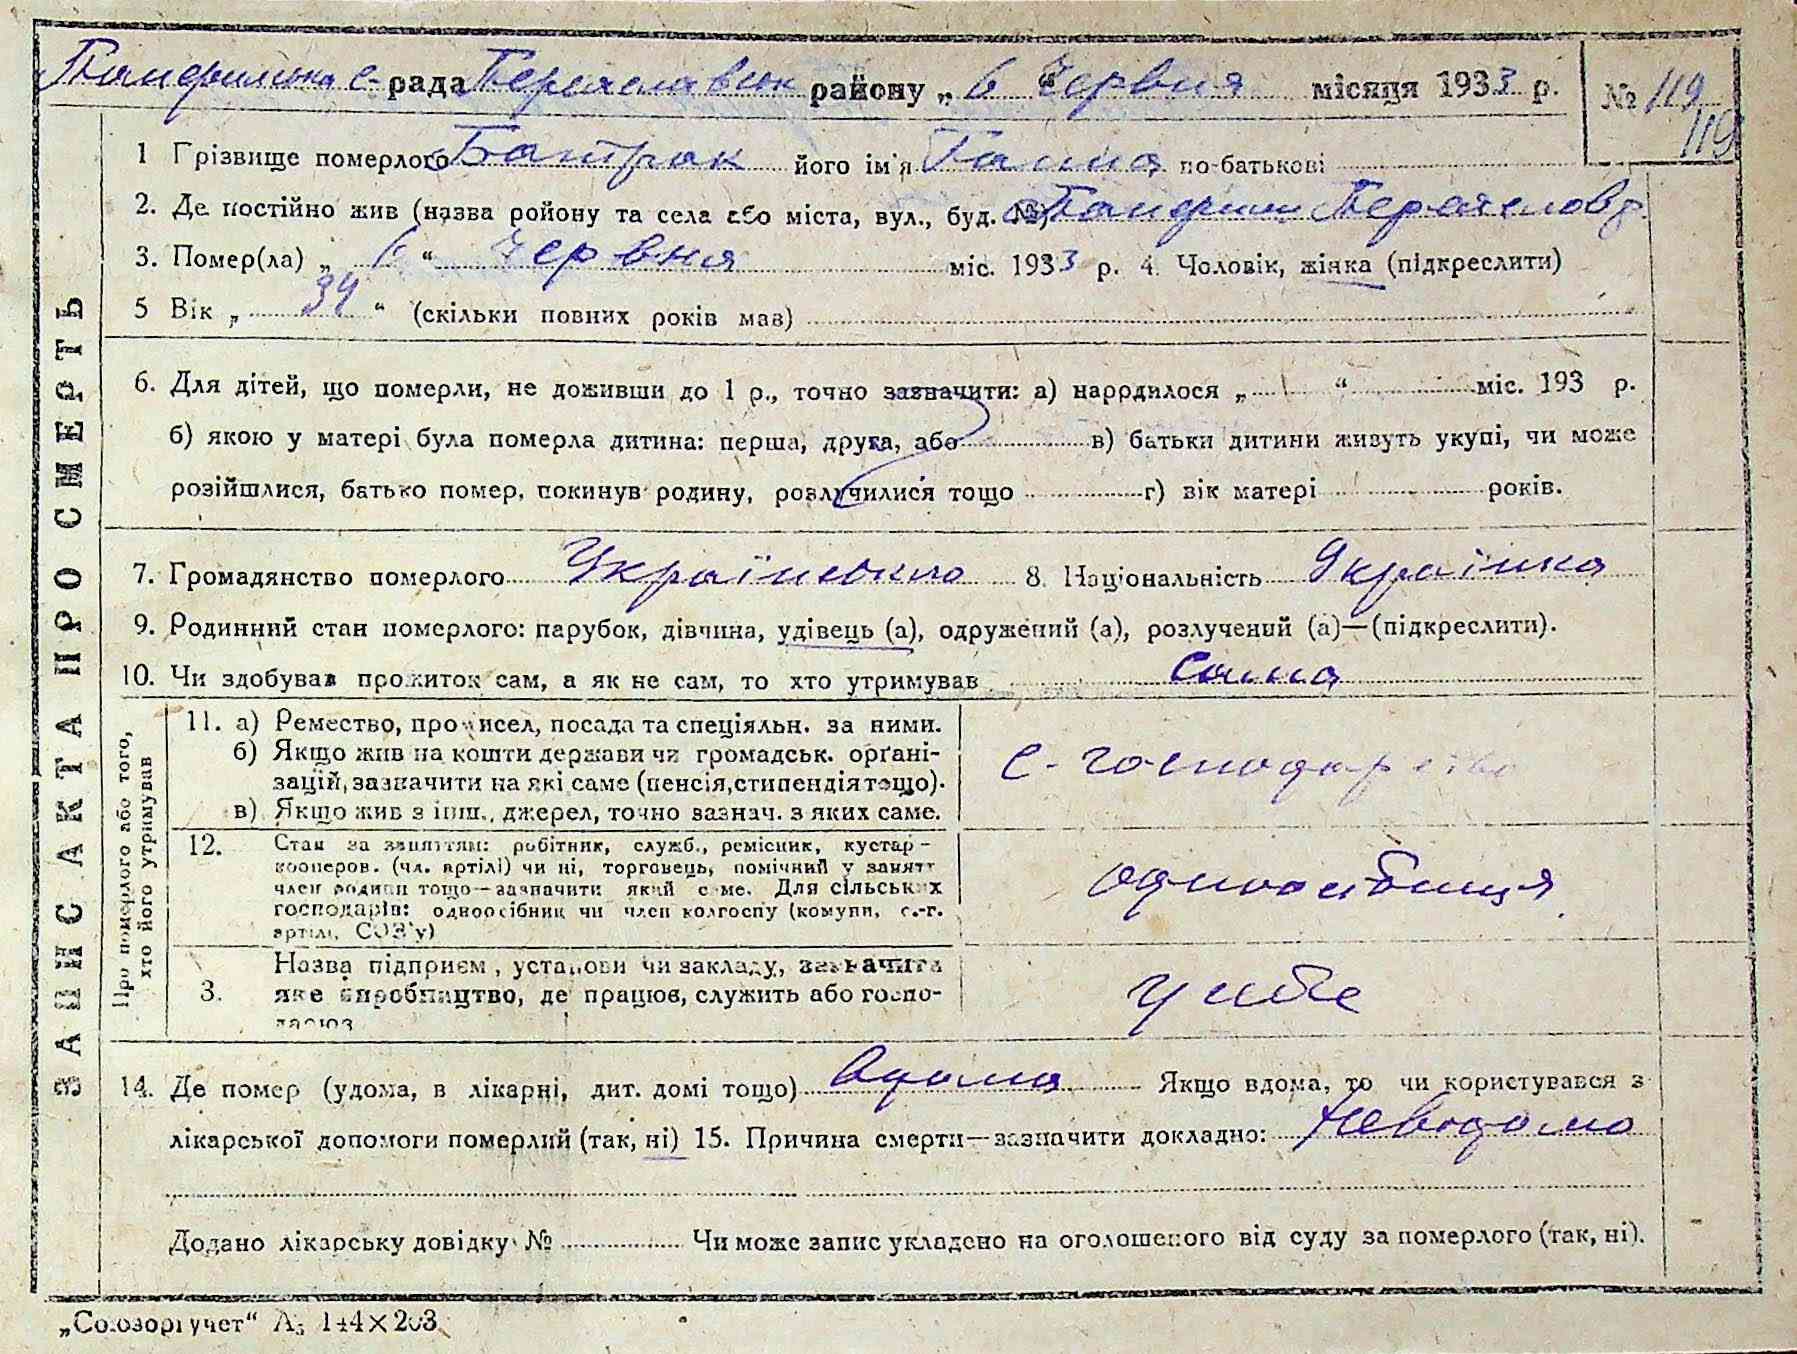 Пандфилська с-рада Переяславськ району „ 6 " Червня місяця 1933 р. № 119
119
1 Грізвище померлого Батрак його ім'я Ганна по-батькові
2. Де постійно жив (назва ройону та села або міста, вул., буд. №) Переяславр
3. Помер(ла) „ 6 " Червня міс. 1933 р. 4. Чоловік, жінка (підкреслити)
5 Вік „ 34 " (скільки повних років мав)
6. Для дітей, що померли, не доживши до 1 р., точно зазначити: а) народилося „ " міс. 193 р.
б) якою у матері була померла дитина: перша, друга, або в) батьки дитини живуть укупі, чи може
розійшлися, батько помер, покинув родину, розлучилися тощо г) вік матері років.
7. Громадянство померлого Українське 8. Національність Українка
9. Родинний стан померлого: парубок, дівчина, удівець (а), одружений (а), розлучений (а)—(підкреслити).
10. Чи здобував прожиток сам, а як не сам, то хто утримував сама
ЗАПИС АКТА ПРО СМЕРТЬ
Про померлого або того,
хто його утримував
11. а) Ремество, промисел, посада та спеціяльн. за ними.
б) Якщо жив на кошти держави чи громадськ. орґані-
зацій, зазначити на які саме (пенсія, стипендія тощо).
в) Якщо жив з інш., джерел, точно зазнач. з яких саме.
с-господарство
12. Стан за заняттям: робітник, служб., ремісник, кустар-
кооперов. (чл. артілі) чи ні, торговець, помічний у занятт
член родини тощо—зазначити який саме. Для сільських
господарів: одноосібник чи член колгоспу (комуни, с.-г.
артілі, СОЗ'у)
одноосібниця
3. Назва підприєм, установи чи закладу, зазначити
яке виробництво, де працює, служить або госпо-
дарює
у себе
14. Де помер (удома, в лікарні, дит. домі тощо) вдома Якщо вдома, то чи користувався з
лікарської допомоги померлий (так, ні) 15. Причина смерти—зазначити докладно: Невідомо
Додано лікарську довідку № Чи може запис укладено на оголошеного від суду за померлого (так, ні).
„Союзоргучет" А5 144×203